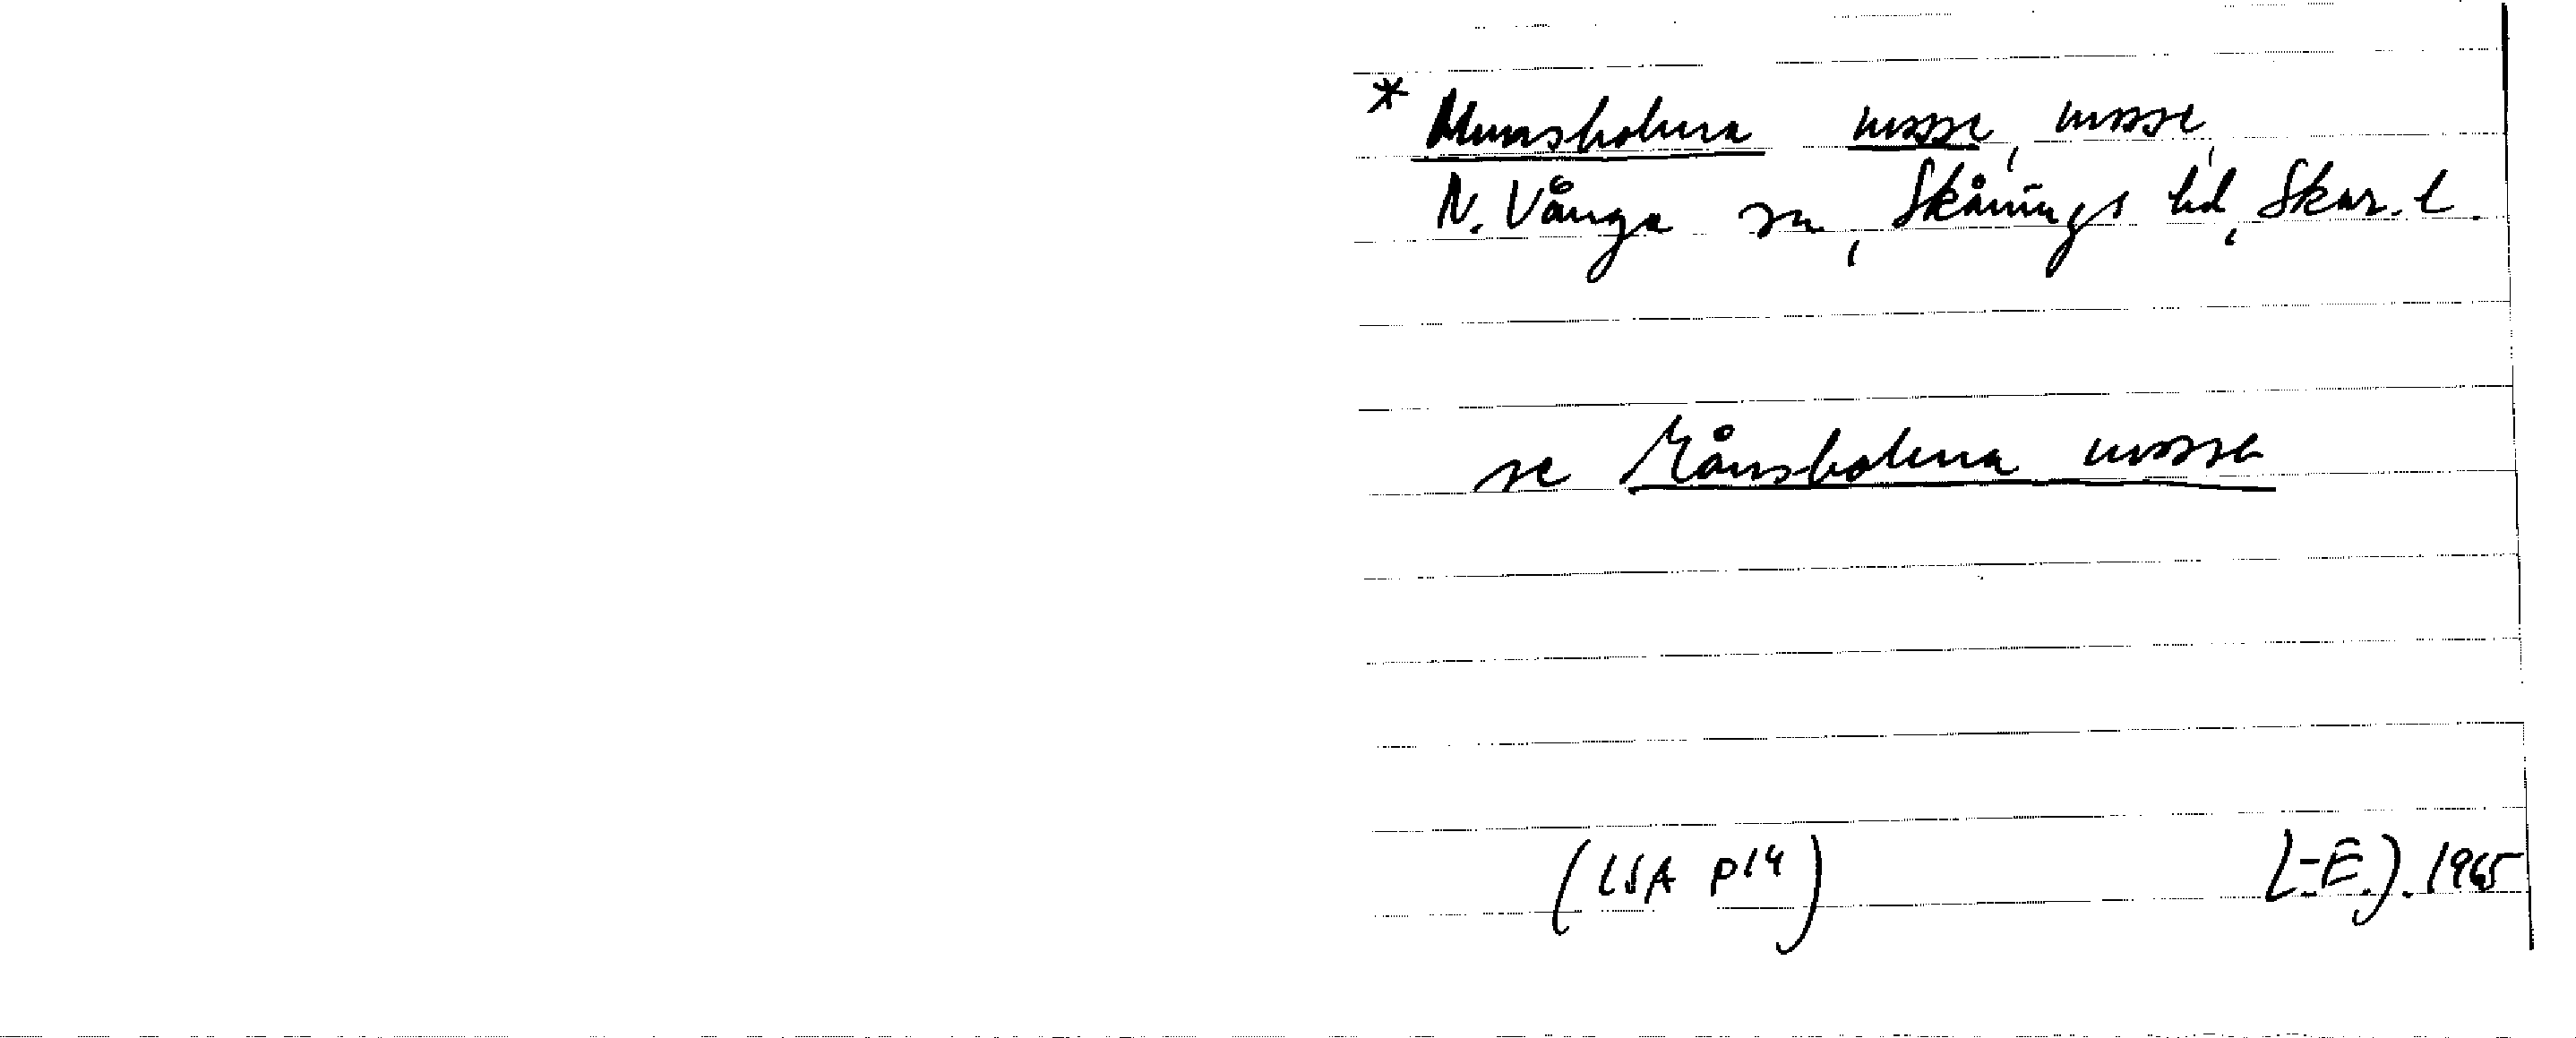 * Munsholma mosse, mosse,
N. Vånga sn, Skånings hd, Skar. l.
se Månsholma mosse
(LSA P14) (-E.). 1965